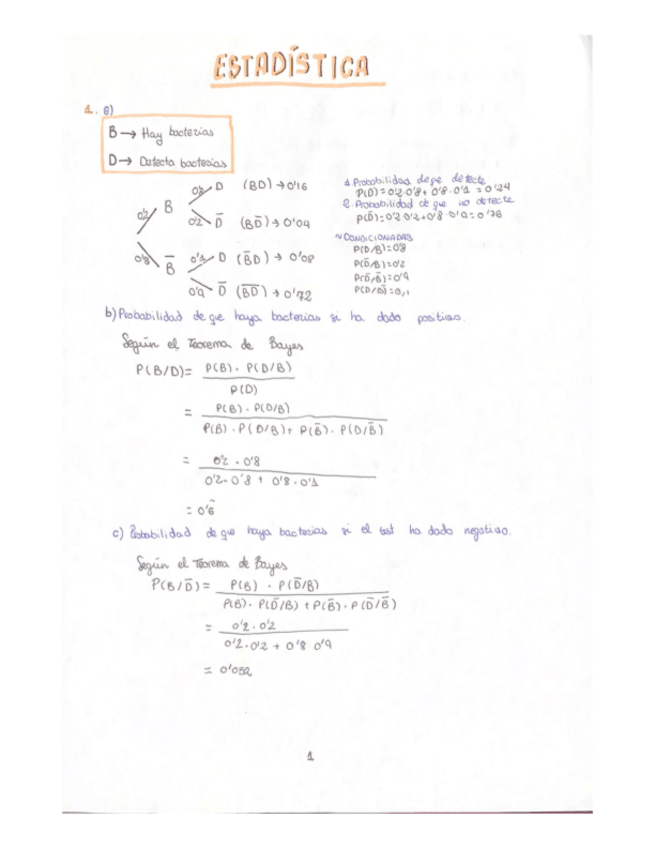 ESTADÍSTICA
1. a)
B → Hay bacterias
D → Detecta bacterias
0'2 B 0'8 D (BD) → 0'16
0'2 D̅ (BD̅) → 0'04
0'8 B̅ 0'1 D (B̅D) → 0'08
0'9 D̅ (B̅D̅) → 0'72
1. Probabilidad de que detecte
P(D)= 0'2·0'8 + 0'8·0'1 = 0'24
2. Probabilidad de que no detecte
P(D̅)= 0'2·0'2 + 0'8·0'9 = 0'76
~ CONDICIONADAS
P(D/B)= 0'8
P(D̅/B)= 0'2
P(D̅/B̅)= 0'9
P(D/B̅)= 0,1
b) Probabilidad de que haya bacterias si ha dado positivo.
Según el Teorema de Bayes
P(B/D)= P(B) · P(D/B)
P(D)
= P(B) · P(D/B)
P(B) · P(D/B) + P(B̅) · P(D/B̅)
= 0'2 · 0'8
0'2 · 0'8 + 0'8 · 0'1
= 0'6̂
c) Probabilidad de que haya bacterias si el test ha dado negativo.
Según el Teorema de Bayes
P(B/D̅) = P(B) · P(D̅/B)
P(B) · P(D̅/B) + P(B̅) · P(D̅/B̅)
= 0'2 · 0'2
0'2 · 0'2 + 0'8 · 0'9
= 0'052
1